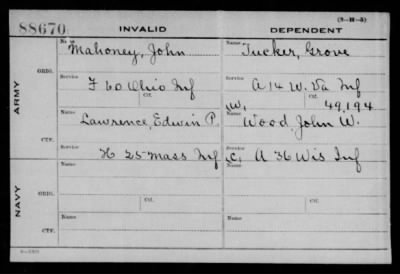 (3-H-5)
88670 INVALID DEPENDENT
Name Mahoney, John Name Tucker, Grove
ARMY
ORIG. Service F 60 Ohio Inf Service A 14 W. Va Inf
Ctf. Ctf.
W, 49,194
CTF. Name Lawrence, Edwin P. Name Wood, John W.
Service H 25 Mass Inf Service C, A 36 Wis Inf
NAVY
ORIG. Name Name
Service Ctf. Service Ctf.
CTF. Name Name
Service Service